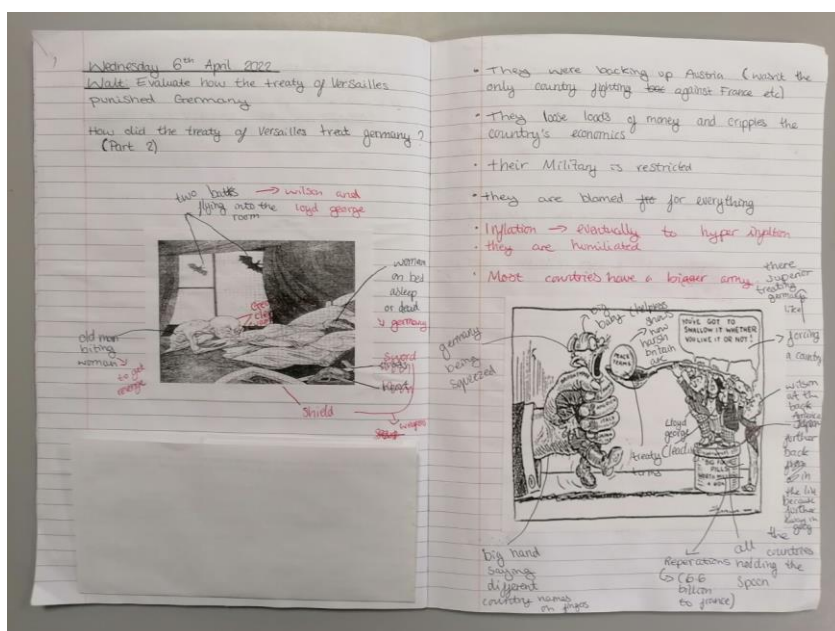 Wednesday 6th April 2022
Walt: Evaluate how the treaty of Versailles
punished Germany
How did the treaty of Versailles treat germany?
(Part 2)
two bats → wilson and
flying into the loyd george
room
women
on bed
asleep
or dead
↓ germany
old man
biting
woman
to get
revenge
Sword
shield
• They were backing up Austria (wasn't the
only country fighting against France etc)
• They loose loads of money and cripples the
country's economics
• their Military is restricted
• they are blamed for everything
• Inflation → eventually to hyper inflation
• they are humiliated
• Most countries have a bigger army
there
superior
treating
germany
like
big
baby (helpless
shows
how
harsh
britain
are
germany
being
squeezed
PEACE
TERMS
YOU'VE GOT TO
SWALLOW IT WHETHER
YOU LIKE IT OR NOT!
forcing
a country
wilson
at the
back
further
back
in
the line
because
further
away in
Lloyd
george
treaty
terms
BIG FOUR
PILLS
WORTH MILLIONS
A BOX
big hand
saying
different
country names
on fingers
Reperations
(£6.6
billion
to france)
all the
countries
holding the
Spoon